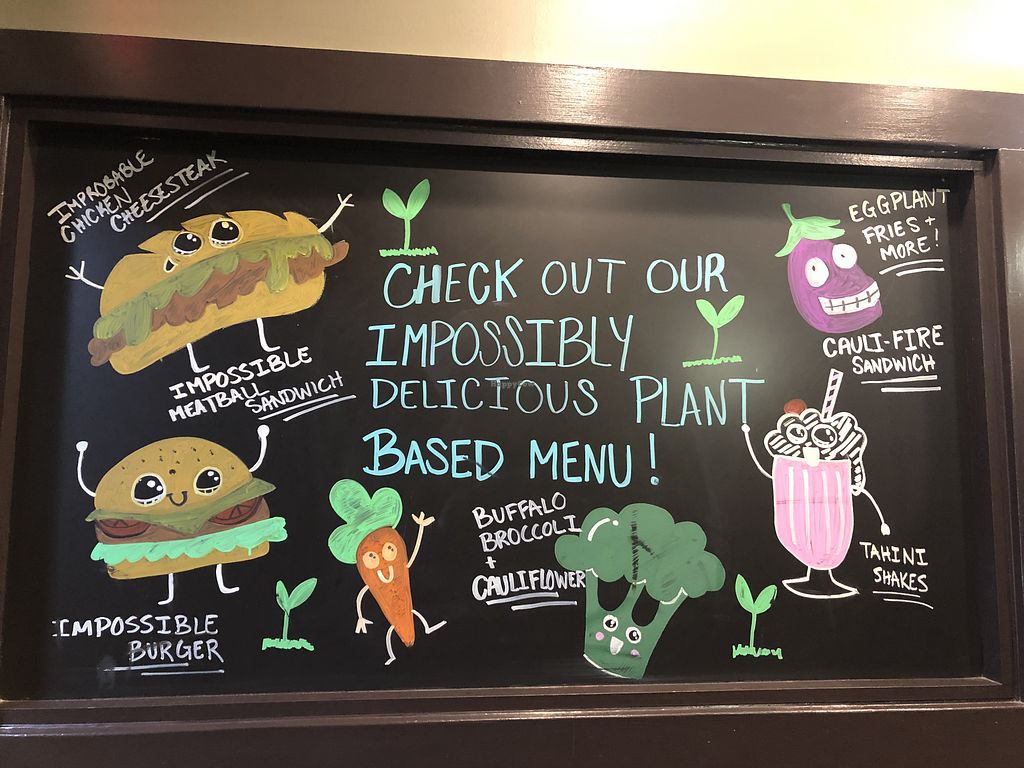 IMPROBABLE
CHICKEN
CHEESESTEAK
IMPOSSIBLE
MEATBALL
SANDWICH
IMPOSSIBLE
BURGER
CHECK OUT OUR
IMPOSSIBLY
DELICIOUS PLANT
BASED MENU!
HappyCow
BUFFALO
BROCCOLI
+
CAULIFLOWER
EGGPLANT
FRIES +
MORE!
CAULI-FIRE
SANDWICH
TAHINI
SHAKES